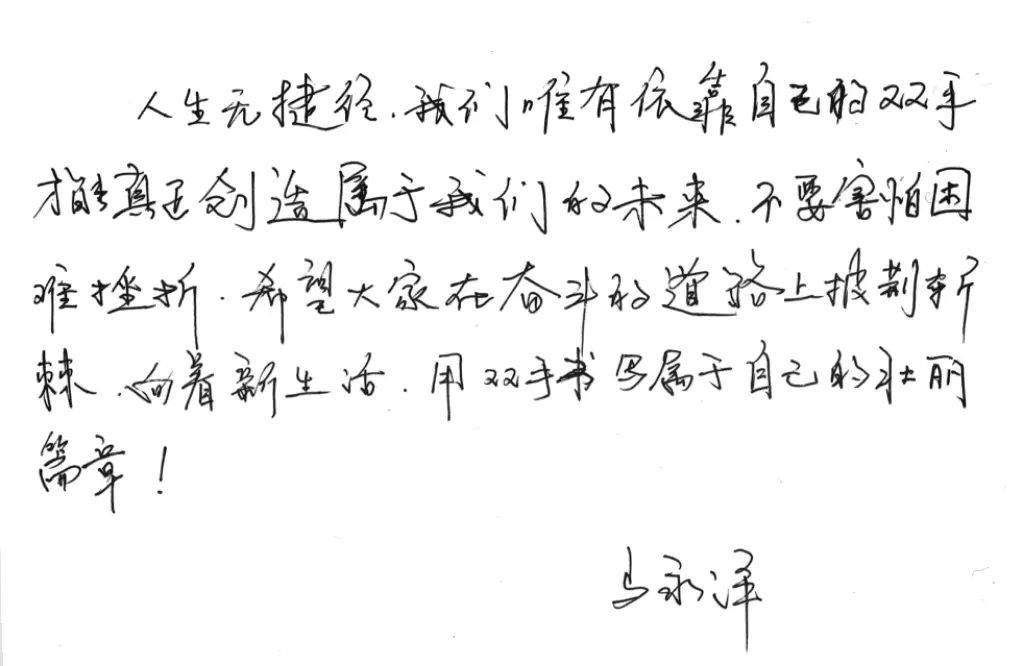 人生无捷径，我们唯有依靠自己的双手
才能真正创造属于我们的未来，不要害怕困
难挫折，希望大家在奋斗的道路上披荆斩
棘，向着新生活，用双手书写属于自己的壮丽
篇章！
马永泽